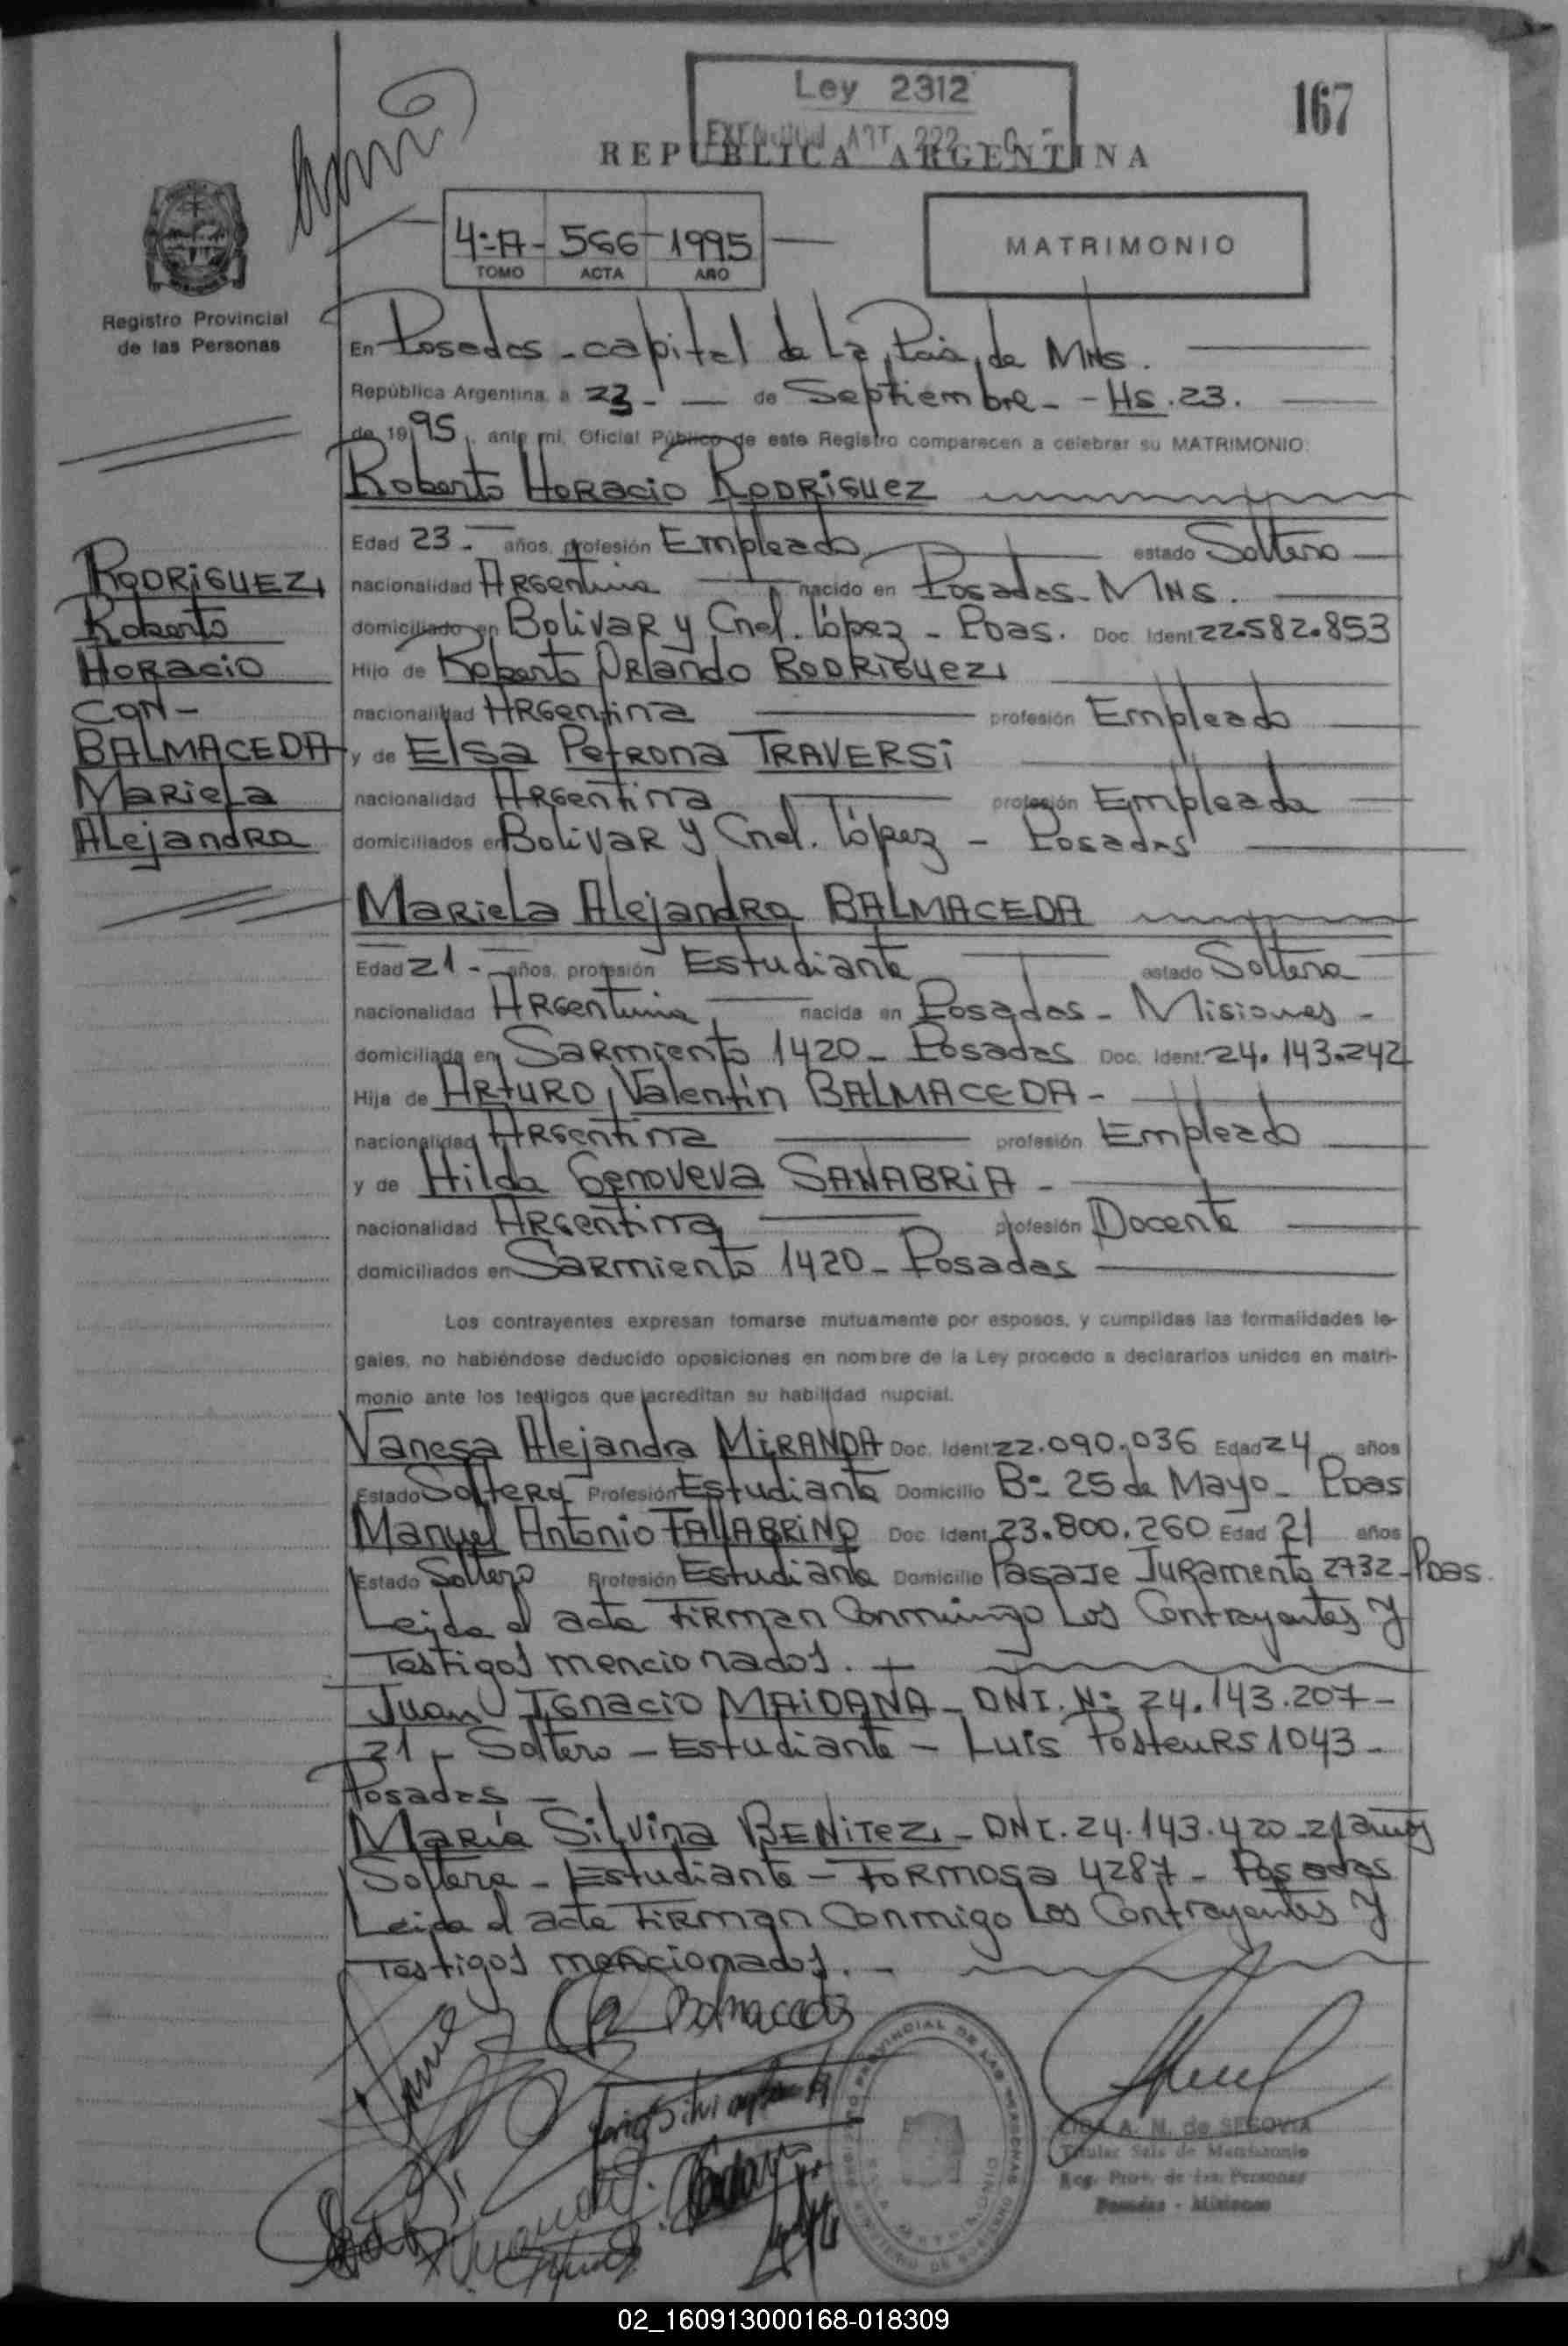 Ley 2312
167
REPUBLICA ARGENTINA
4º-A- 566-1995
TOMO ACTA AÑO
MATRIMONIO
Registro Provincial
de las Personas
En Posadas - capital de la Pcia. de Mnes.
República Argentina, a 23 - de Septiembre - Hs. 23.
de 1995, ante mi, Oficial Público de este Registro comparecen a celebrar su MATRIMONIO:
Roberto Horacio RODRIGUEZ
Edad 23.- años, profesión Empleado estado Soltero
nacionalidad Argentina nacido en Posadas - Mns.
domiciliado en Bolivar y Cnel. López - Pdas. Doc. Ident. 22.582.853
Hijo de Roberto Orlando RODRIGUEZ
nacionalidad Argentina profesión Empleado
y de Elsa Petrona TRAVERSI
nacionalidad Argentina profesión Empleada
domiciliados en Bolivar y Cnel. López - Posadas
RODRIGUEZ,
Roberto
Horacio
CON -
BALMACEDA
Mariela
Alejandra
Mariela Alejandra BALMACEDA
Edad 21 - años, profesión Estudiante estado Soltera
nacionalidad Argentina nacida en Posadas - Misiones -
domiciliada en Sarmiento 1420 - Posadas Doc. Ident. 24.143.242
Hija de Arturo Valentín BALMACEDA -
nacionalidad Argentina profesión Empleado
y de Hilda Genoveva SANABRIA -
nacionalidad Argentina profesión Docente
domiciliados en Sarmiento 1420 - Posadas
Los contrayentes expresan tomarse mutuamente por esposos, y cumplidas las formalidades le-
gales, no habiéndose deducido oposiciones en nombre de la Ley procedo a declararlos unidos en matri-
monio ante los testigos que acreditan su habilidad nupcial.
Vanesa Alejandra MIRANDA Doc. Ident. 22.090.036 Edad 24 años
Estado Soltera Profesión Estudiante Domicilio Bº 25 de Mayo - Pdas
Manuel Antonio TALLABRINO Doc. Ident. 23.800.260 Edad 21 años
Estado Soltero Profesión Estudiante Domicilio Pasaje Juramento 2732 - Pdas.
Leida el acta firman conmingo los Contrayentes y
Testigos mencionados.
Juan Ignacio MAIDANA - DNI. Nº 24.143.207 -
21 - Soltero - Estudiante - Luis Posteurs 1043 -
Posadas -
María Silvina BENITEZ - DNI. 24.143.420 - 21 años
Soltera - Estudiante - Formosa 4287 - Posadas
Leida el acta firman conmigo los Contrayentes y
Testigos mencionados.
Balmaceda
A. M. de SEGOVIA
Titular Sala de Matrimonio
Reg. Prov. de las Personas
Posadas - Misiones
02_160913000168-018309